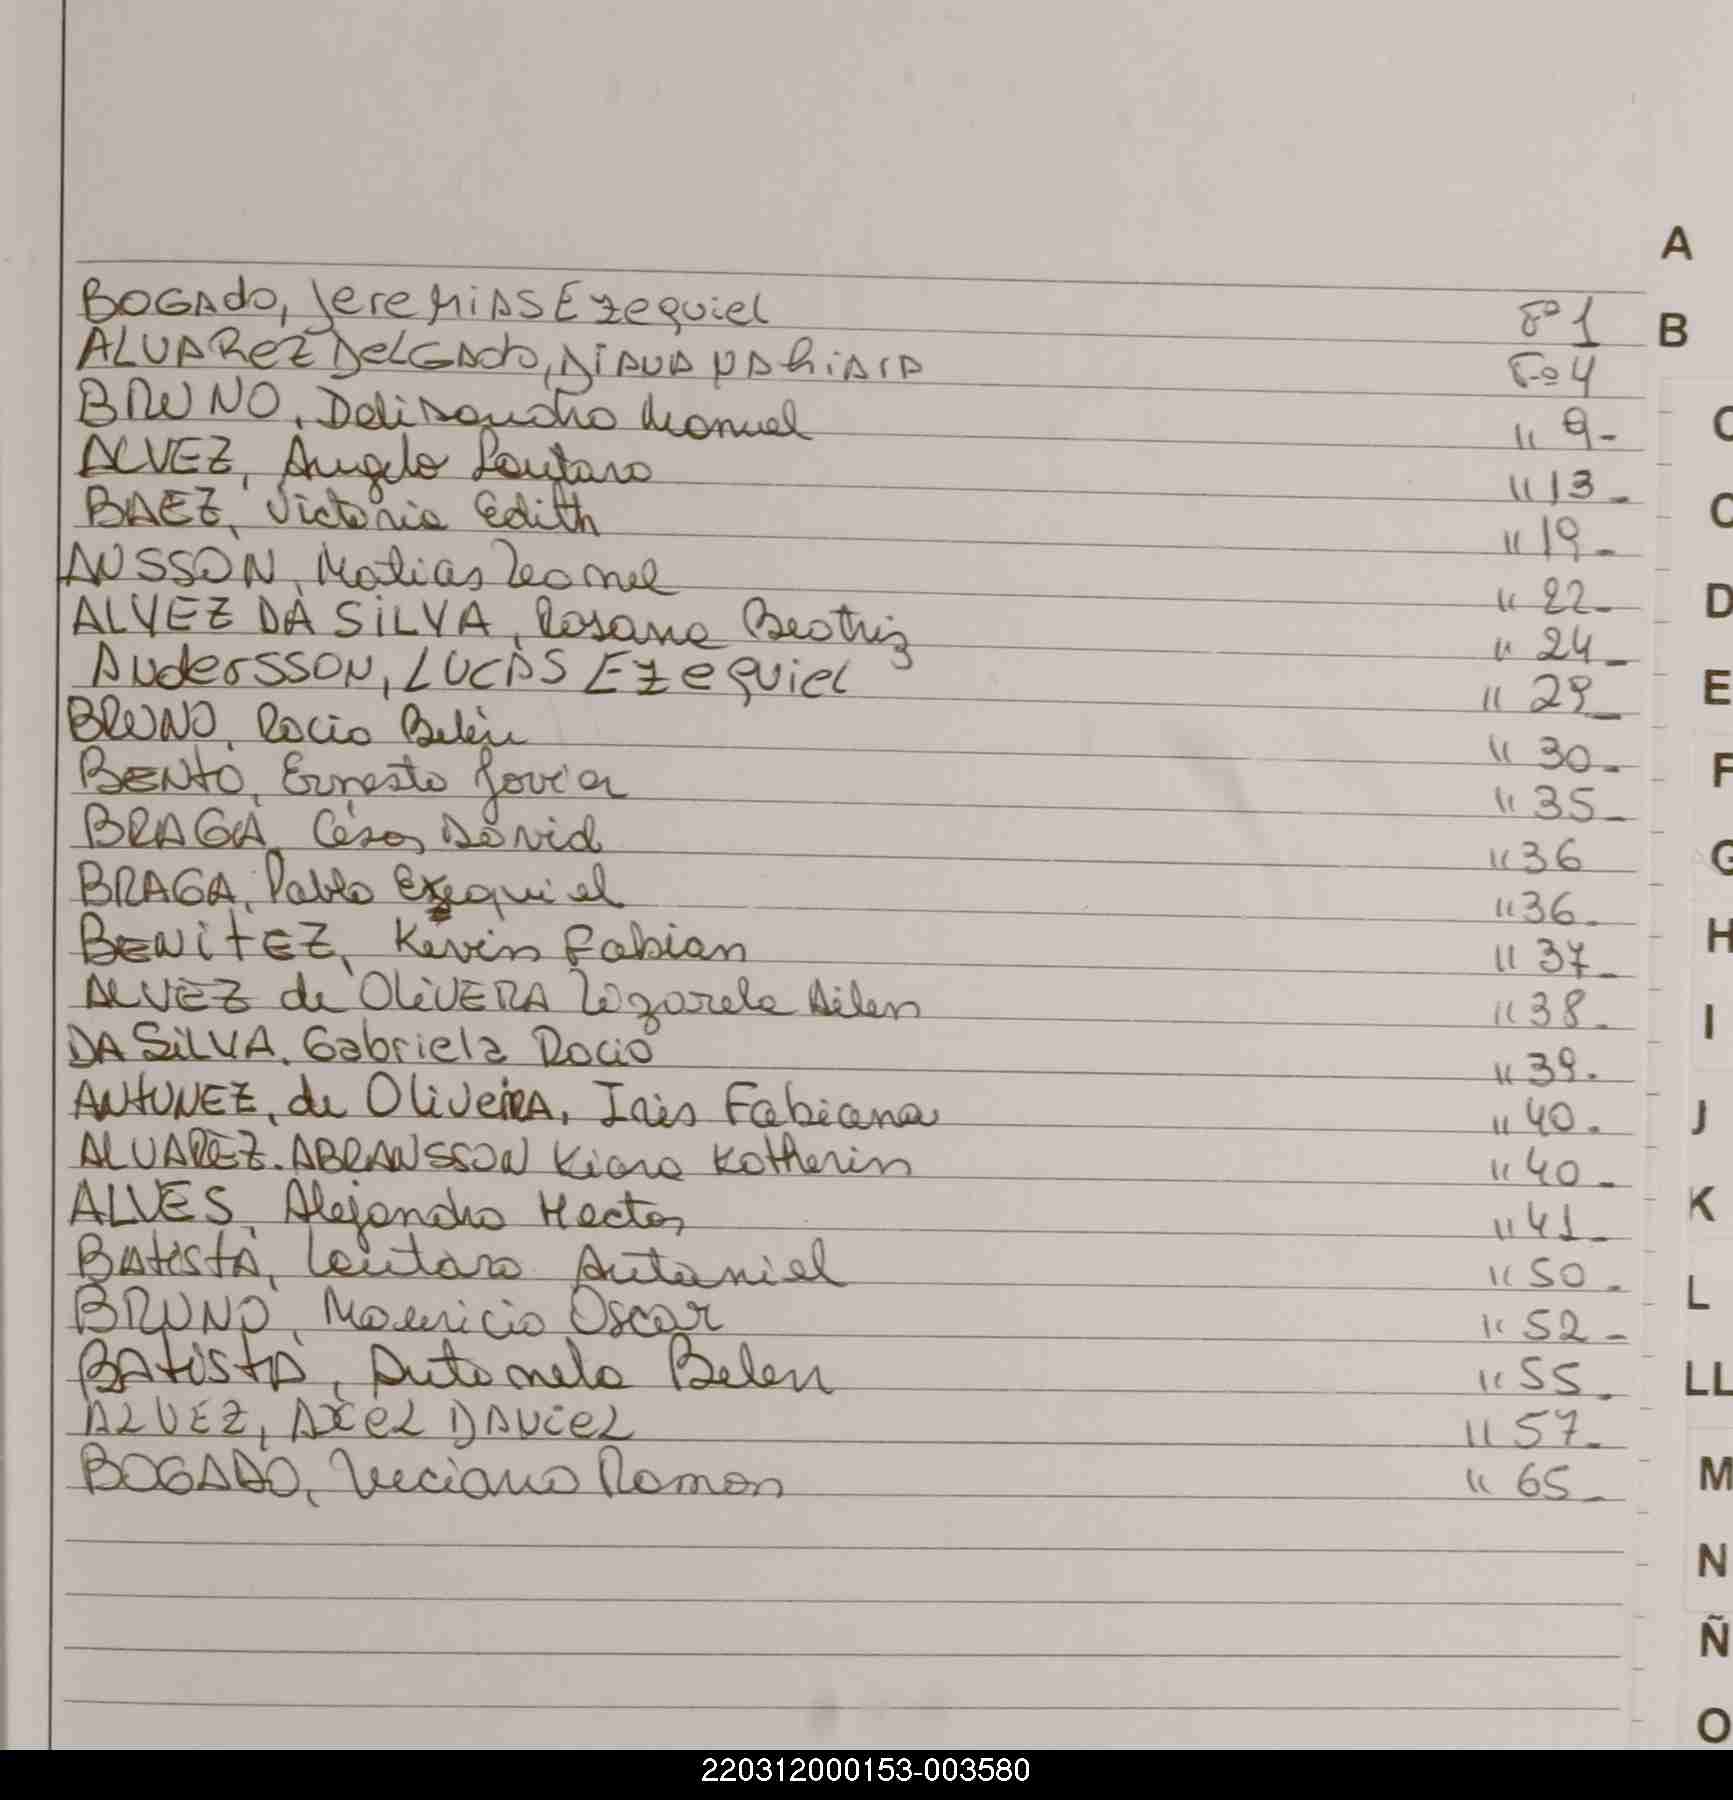 A
BOGADO, Jeremias Ezequiel Fº 1
B
ALVAREZ DELGADO, DIANA NAhiARA Fº 4
BRUNO, Delisandro Manuel " 9-
C
ALVEZ, Angelo Lautaro " 13-
BAEZ, Victoria Edith " 19-
ANSSON, Matias Leonel " 22-
D
ALVEZ DA SILVA, Rosana Beatriz " 24-
ANDERSSON, LUCAS EZequiel " 29-
E
BRUNO, Rocio Belén " 30-
F
BENTO, Ernesto Javier " 35-
BRAGA, César David " 36
G
BRAGA, Pablo Ezequiel " 36-
BENITEZ, Kevin Fabian " 37-
H
ALVEZ de OLIVERA Ailen " 38-
I
DA SILVA, Gabriela Rocio " 39-
ANTUNEZ, de OliveiRA, Iris Fabiana " 40-
J
ALVAREZ. ABRANSSON Kiara Katherin " 40-
ALVES, Alejandro Hector " 41-
K
BATISTA, Lautaro " 50-
L
BRUNO, Mauricio Oscar " 52-
BATISTA, Antonela Belen " 55-
LL
ALVEZ, AXEL DANIEL " 57-
BOGADO, Luciano Ramon " 65-
M
N
Ñ
O
220312000153-003580